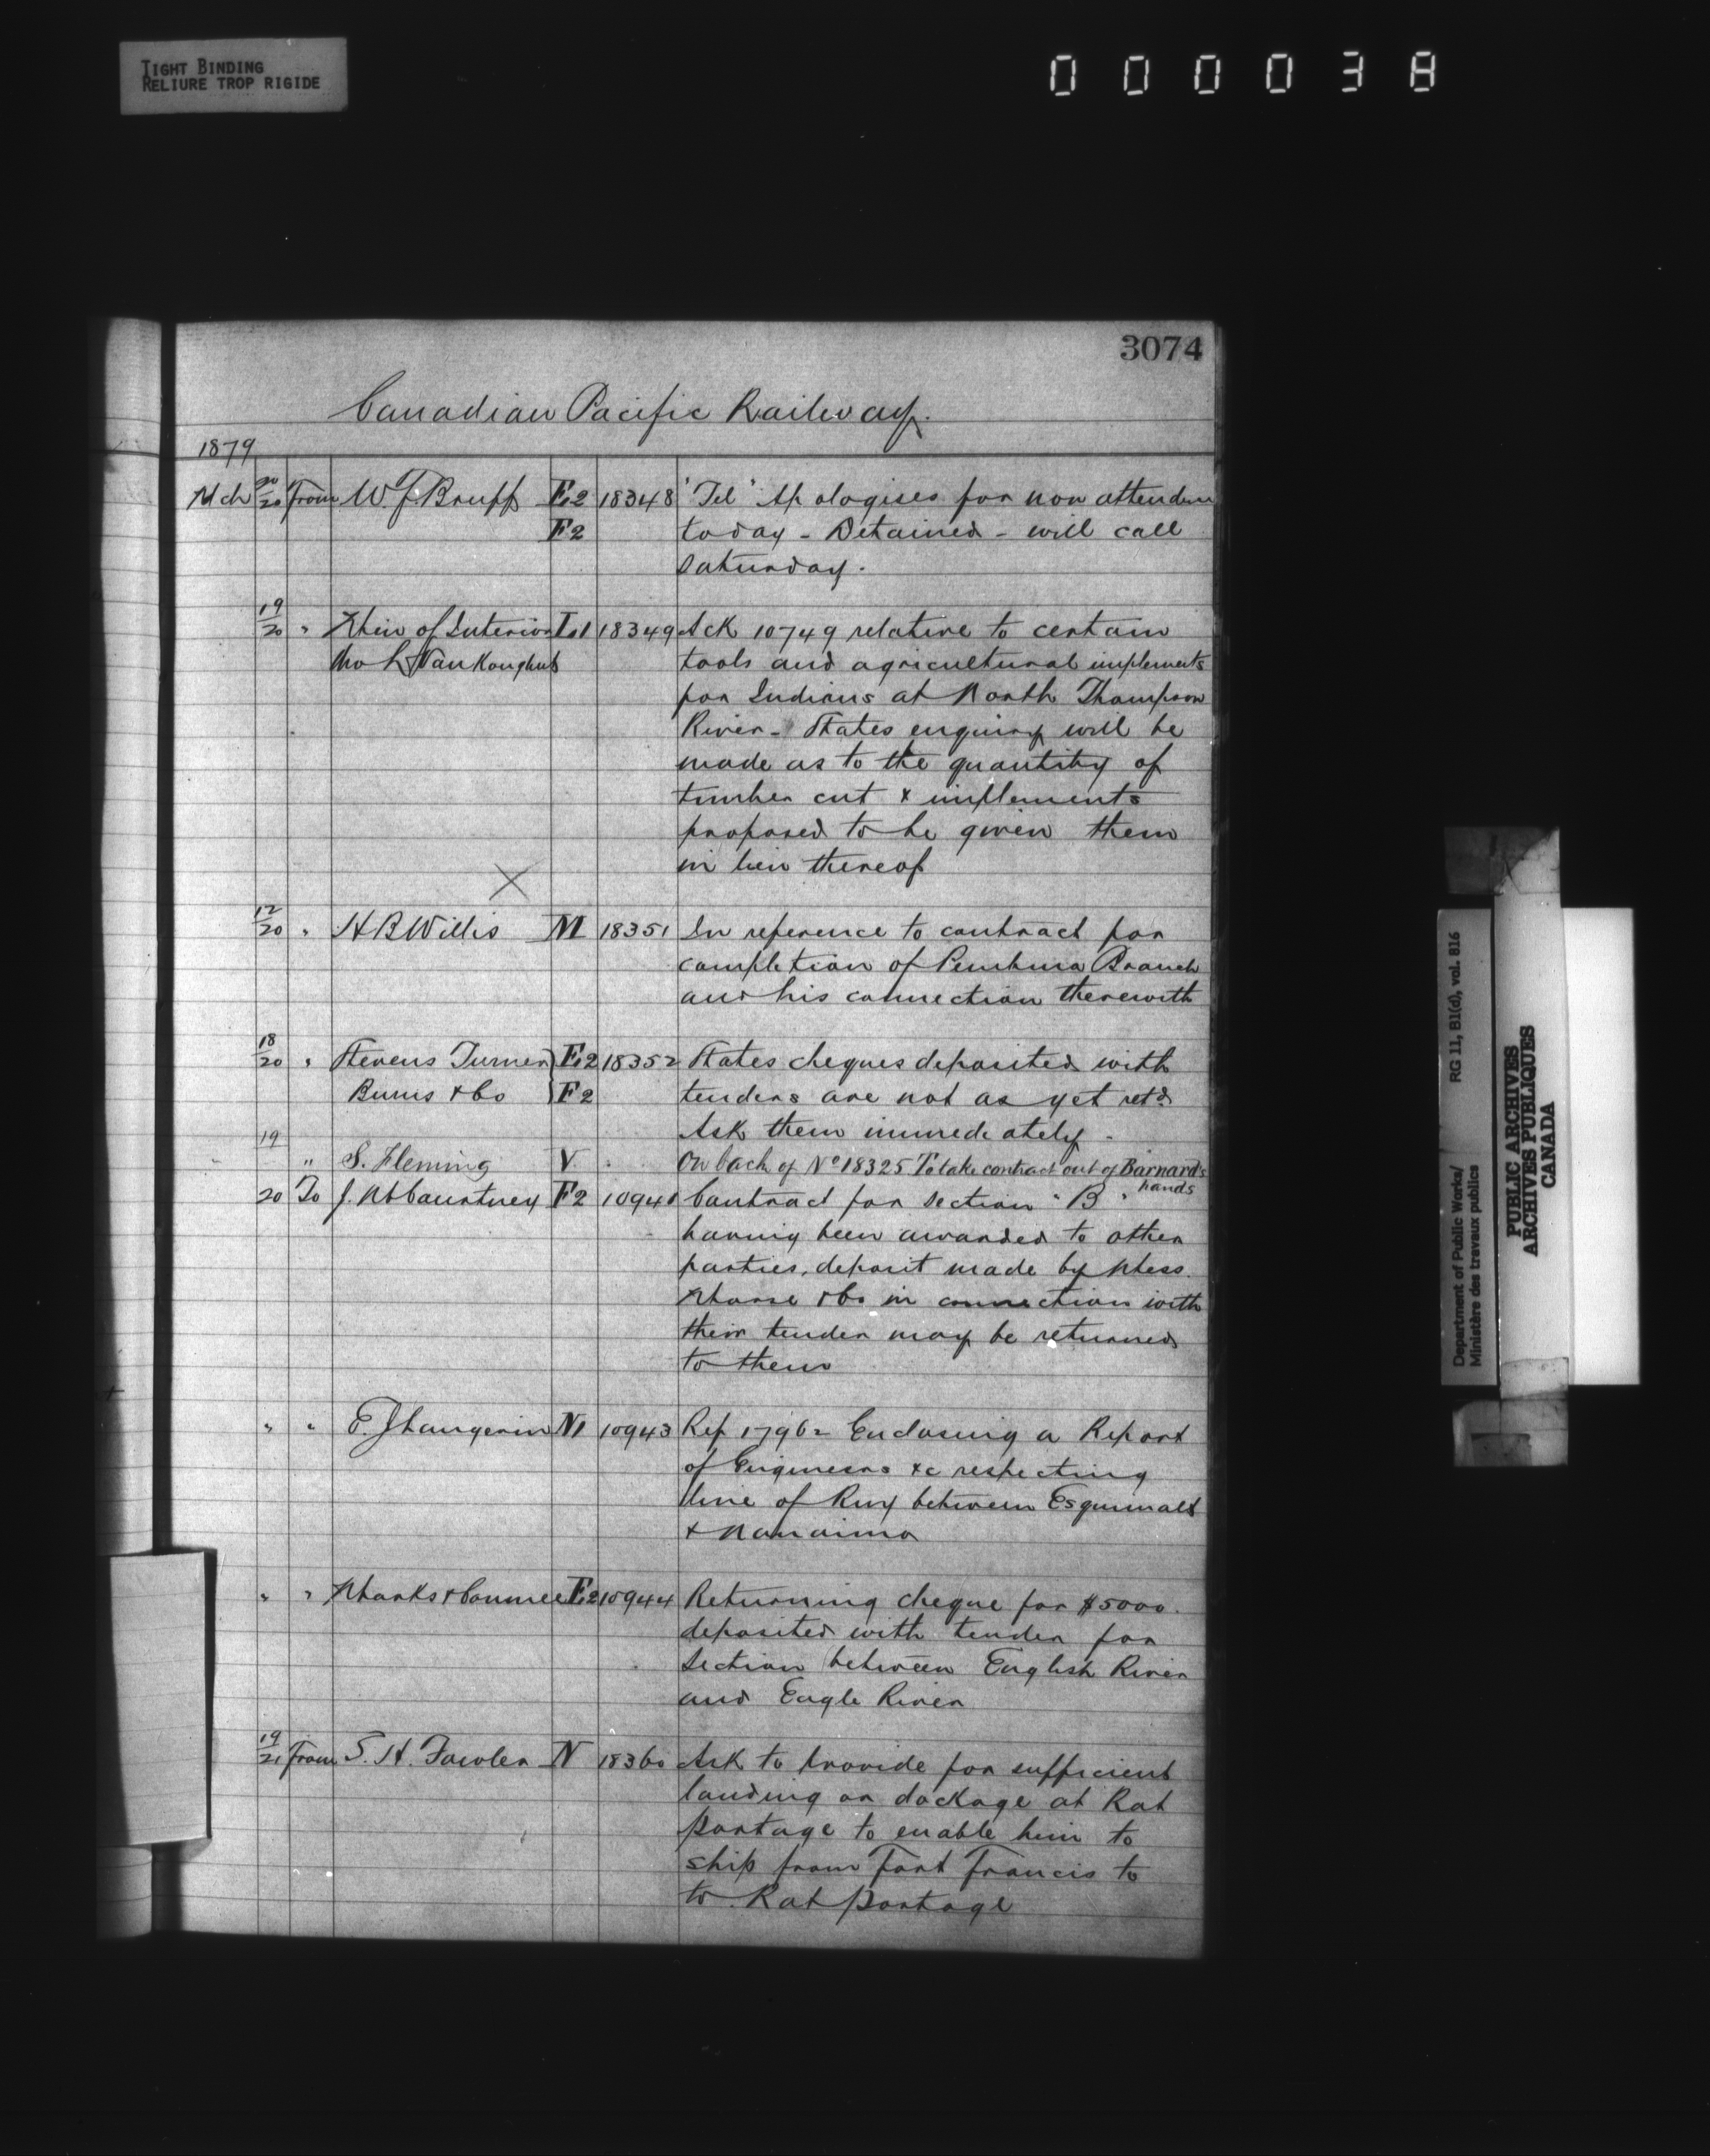 TIGHT BINDING
RELIURE TROP RIGIDE
000038
3074
Canadian Pacific Railway.
1879
Mch 20/20 From W. J. Bruff E2 18348 "Tel" Apologises for non attendance
F2 today - Detained - will call
Saturday.
19/20 " Min of Interior I1 18349 Ack 10749 relative to certain
VanKoughnet tools and agricultural implements
for Indians at North Thompson
River - States enquiry will be
made as to the quantity of
timber cut & implements
proposed to be given them
in lieu thereof
X
12/20 " H B Willis M 18351 In reference to contract for
completion of Pembina Branch
and his connection therewith
18/20 " Stevens Turner } E2 18352 States cheques deposited with
Burns & Co } F2 tenders are not as yet retd
Ask them immediately -
19 " S. Fleming V On back of No 18325 To take contract out of Barnard's
hands
20 To J. M Courtney F2 10941 Contract for section "B"
having been awarded to other
parties, deposit made by Mess.
Morse & Co in connection with
their tender may be returned
to them
" " E. J Langevin N1 10943 Ref 17962 Enclosing a Report
of Engineers &c respecting
line of Rwy between Esquimalt
& Nanaimo
" " Marks & Conmee E2 10944 Returning cheque for $5000.
deposited with tender for
section between English River
and Eagle River
19/21 From S. H. Fowler N 18360 Ask to provide for sufficient
landing or dockage at Rat
Portage to enable him to
ship from Fort Francis to
to Rat Portage
Department of Public Works/ RG 11, B1(d), vol. 816
Ministère des travaux publics
PUBLIC ARCHIVES
ARCHIVES PUBLIQUES
CANADA